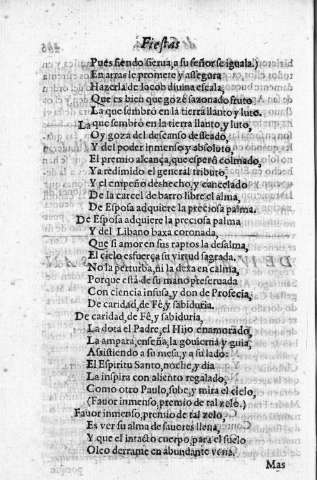 Fiestas
Pues siendo sierua, a su señor se iguala.)
En arras le promete y assegura
Hazerla de Iacob diuina escala,
Que es bien que goze sazonado fruto
La que sembrò en la tierra llanto y luto.
La que sembrò en la tierra llanto y luto,
Oy goza del descanso desseado,
Y del poder inmenso y absoluto,
El premio alcança, que esperò colmado,
Ya redimido el general tributo,
Y el empeño deshecho, y cancelado
De la carcel de barro libre el alma,
De Esposa adquiere la preciosa palma.
De Esposa adquiere la preciosa palma
Y del Libano baxa coronada,
Que si amor en sus raptos la desalma,
El cielo esfuerça su virtud sagrada.
No la perturba, ni la dexa en calma,
Porque està de su mano preseruada
Con ciencia infusa, y don de Profecia,
De caridad, de Fè, y sabiduria.
De caridad, de Fè, y sabiduria,
La dota el Padre, el Hijo enamorado,
La ampara, enseña, la gouierna y guia,
Assistiendo a su mesa, y a su lado:
El Espiritu Santo, noche, y dia
La inspira con aliento regalado,
Como otro Paulo, sube, y mira el cielo,
(Fauor inmenso, premio de tal zelo.)
Fauor inmenso, premio de tal zelo,
Es ver su alma de fauores llena,
Y que el intacto cuerpo, para el suelo
Oleo derrame en abundante vena.
Mas